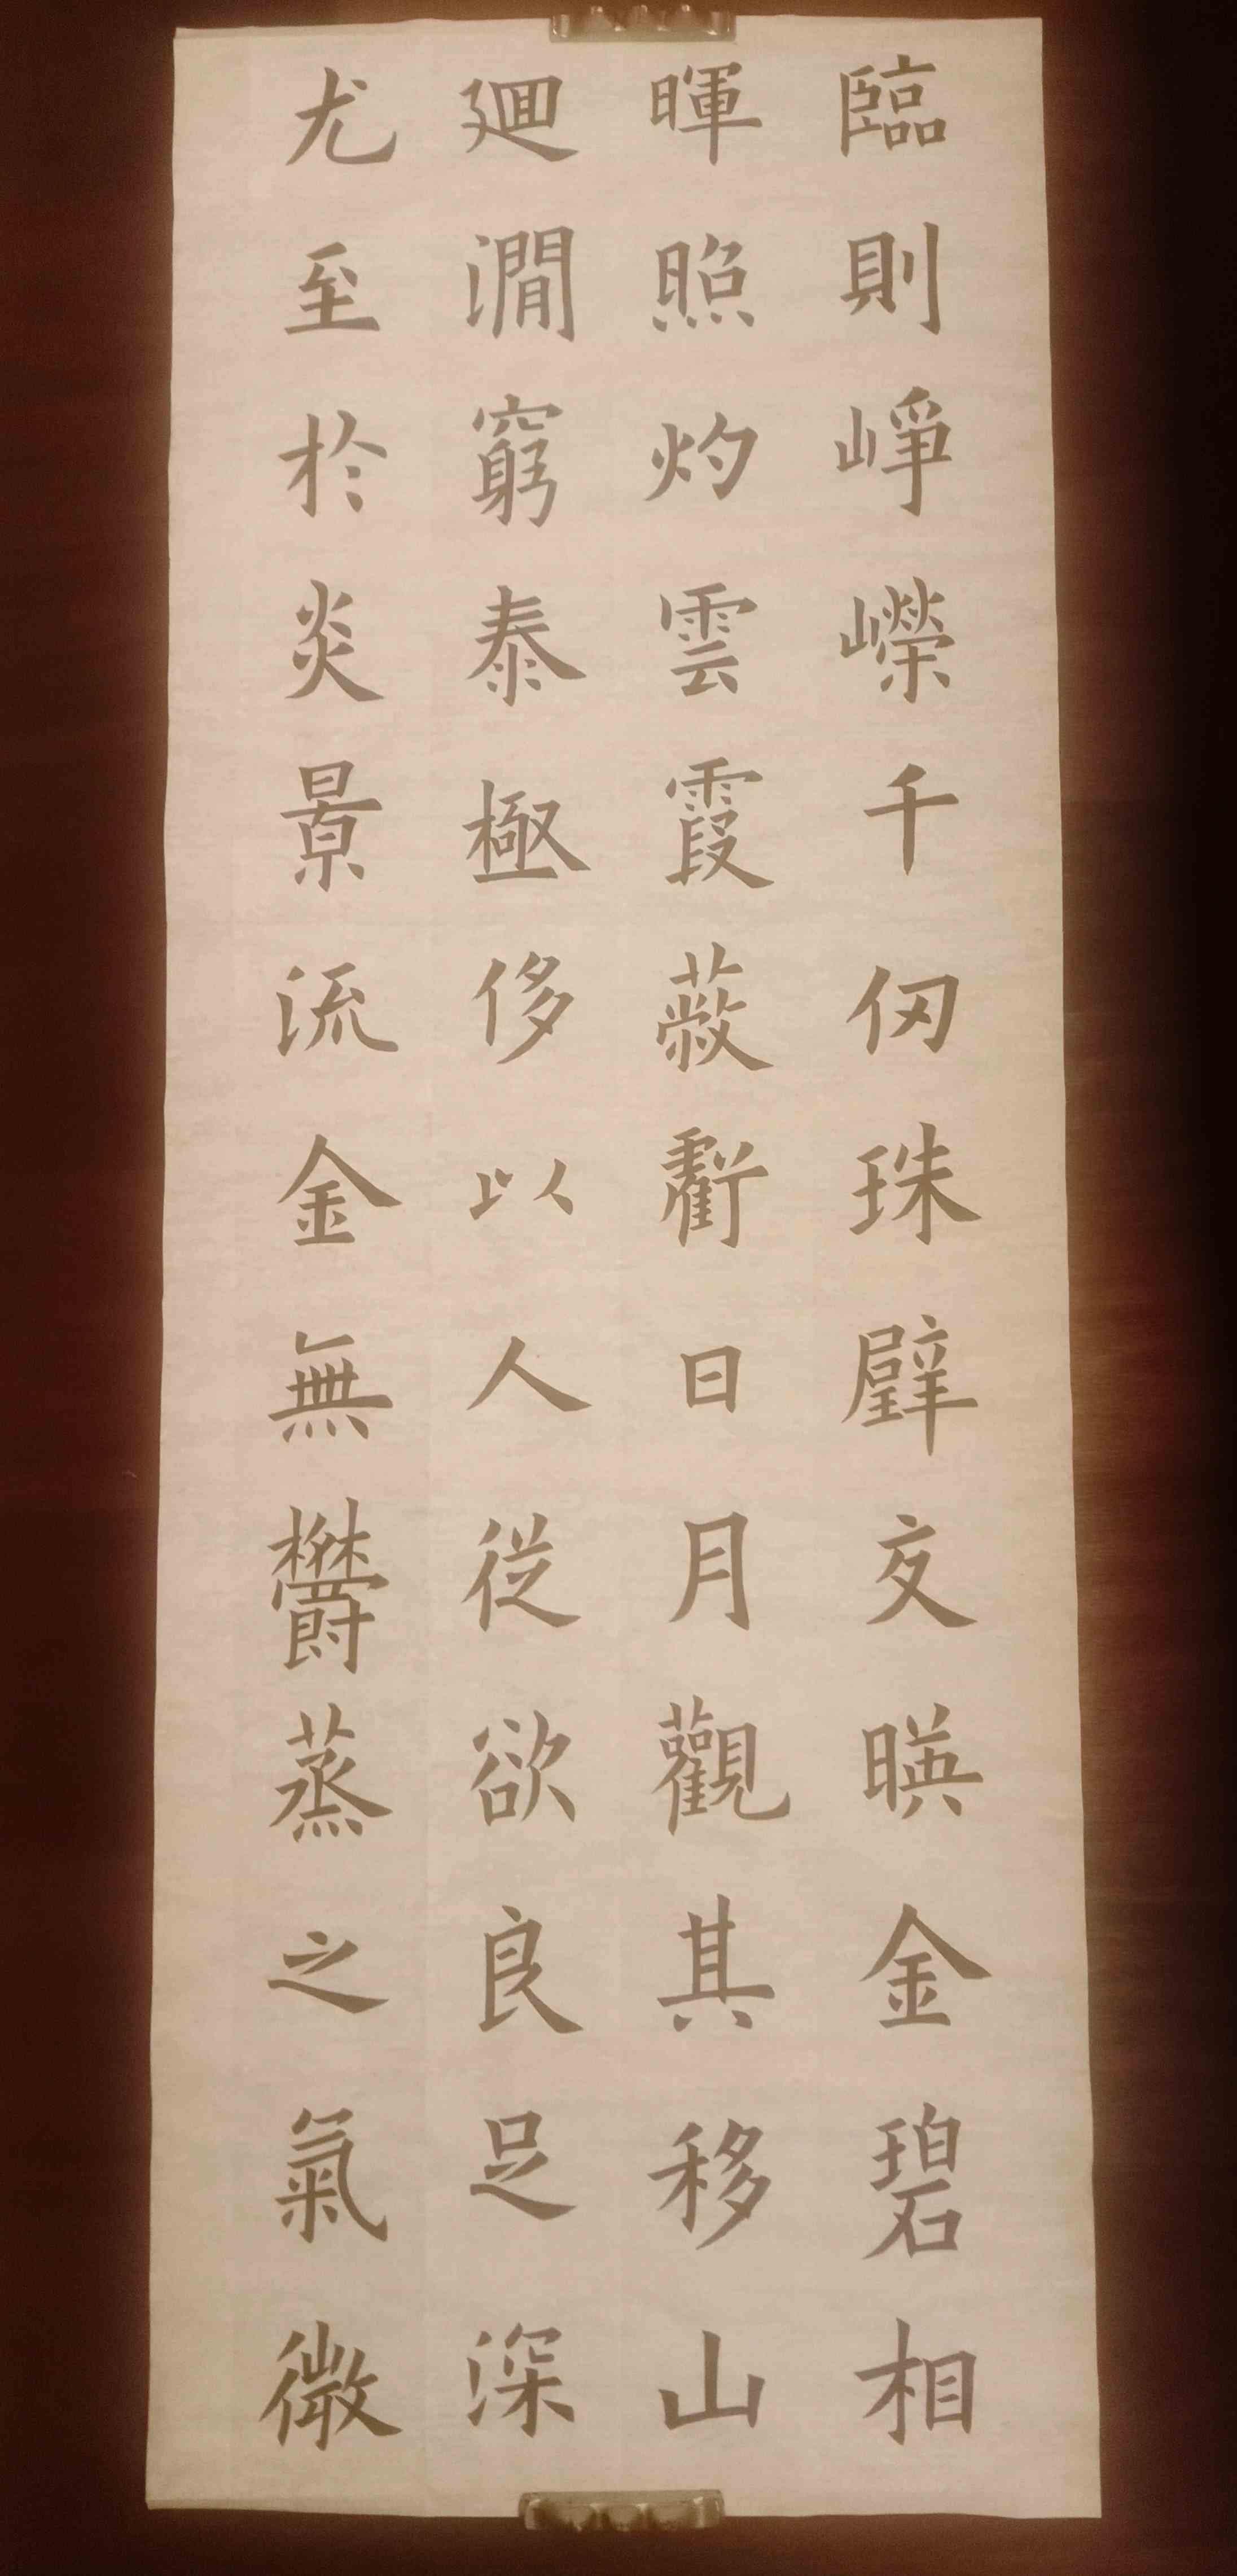 臨則崢嶸千仞珠壁交暎金碧相
暉照灼雲霞蔽虧日月觀其移山
廻澗窮泰極侈以人從欲良足深
尤至於炎景流金無鬱蒸之氣微